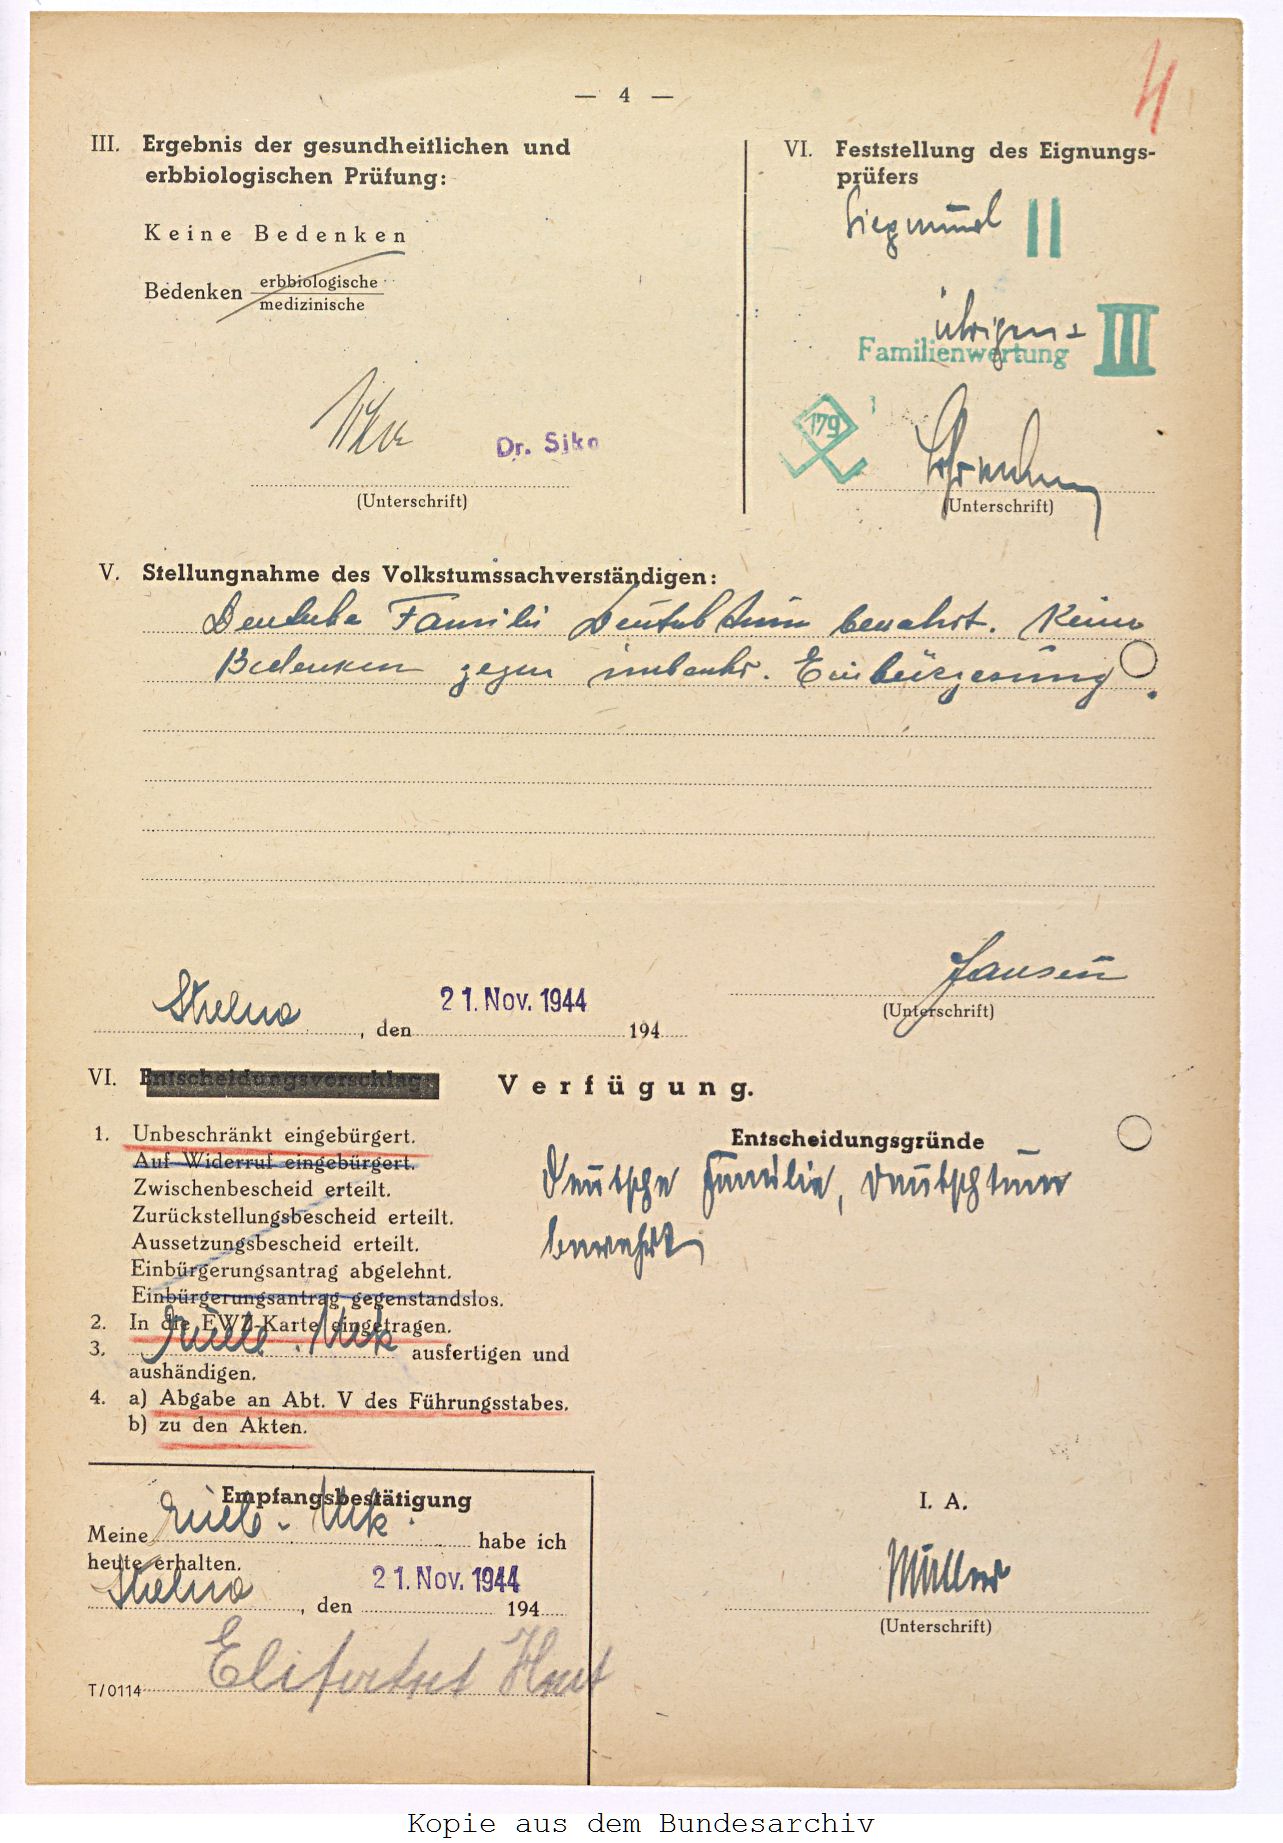 — 4 —
4
III. Ergebnis der gesundheitlichen und
erbbiologischen Prüfung:
Keine Bedenken
Bedenken erbbiologische
medizinische
Dr. Siko
(Unterschrift)
VI. Feststellung des Eignungs-
prüfers
Siegmund II
übrigen
Familienwertung III
179
(Unterschrift)
V. Stellungnahme des Volkstumssachverständigen:
Deutsche Familie Deutschtum bewahrt. Keine
Bedenken gegen unbeschr. Einbürgerung.
Jansen
(Unterschrift)
Strelno, den 21. Nov. 1944 194
VI. Entscheidungsvorschlag:
Verfügung.
1. Unbeschränkt eingebürgert.
Auf Widerruf eingebürgert.
Zwischenbescheid erteilt.
Zurückstellungsbescheid erteilt.
Aussetzungsbescheid erteilt.
Einbürgerungsantrag abgelehnt.
Einbürgerungsantrag gegenstandslos.
2. In die EWZ-Karte eingetragen.
3. Urk. ausfertigen und
aushändigen.
4. a) Abgabe an Abt. V des Führungsstabes.
b) zu den Akten.
Entscheidungsgründe
Deutsche Familie, Deutschtum
bewahrt
Empfangsbestätigung
Meine Urk. habe ich
heute erhalten.
Strelno, den 21. Nov. 1944 194
T/0114
I. A.
Müller
(Unterschrift)
Kopie aus dem Bundesarchiv